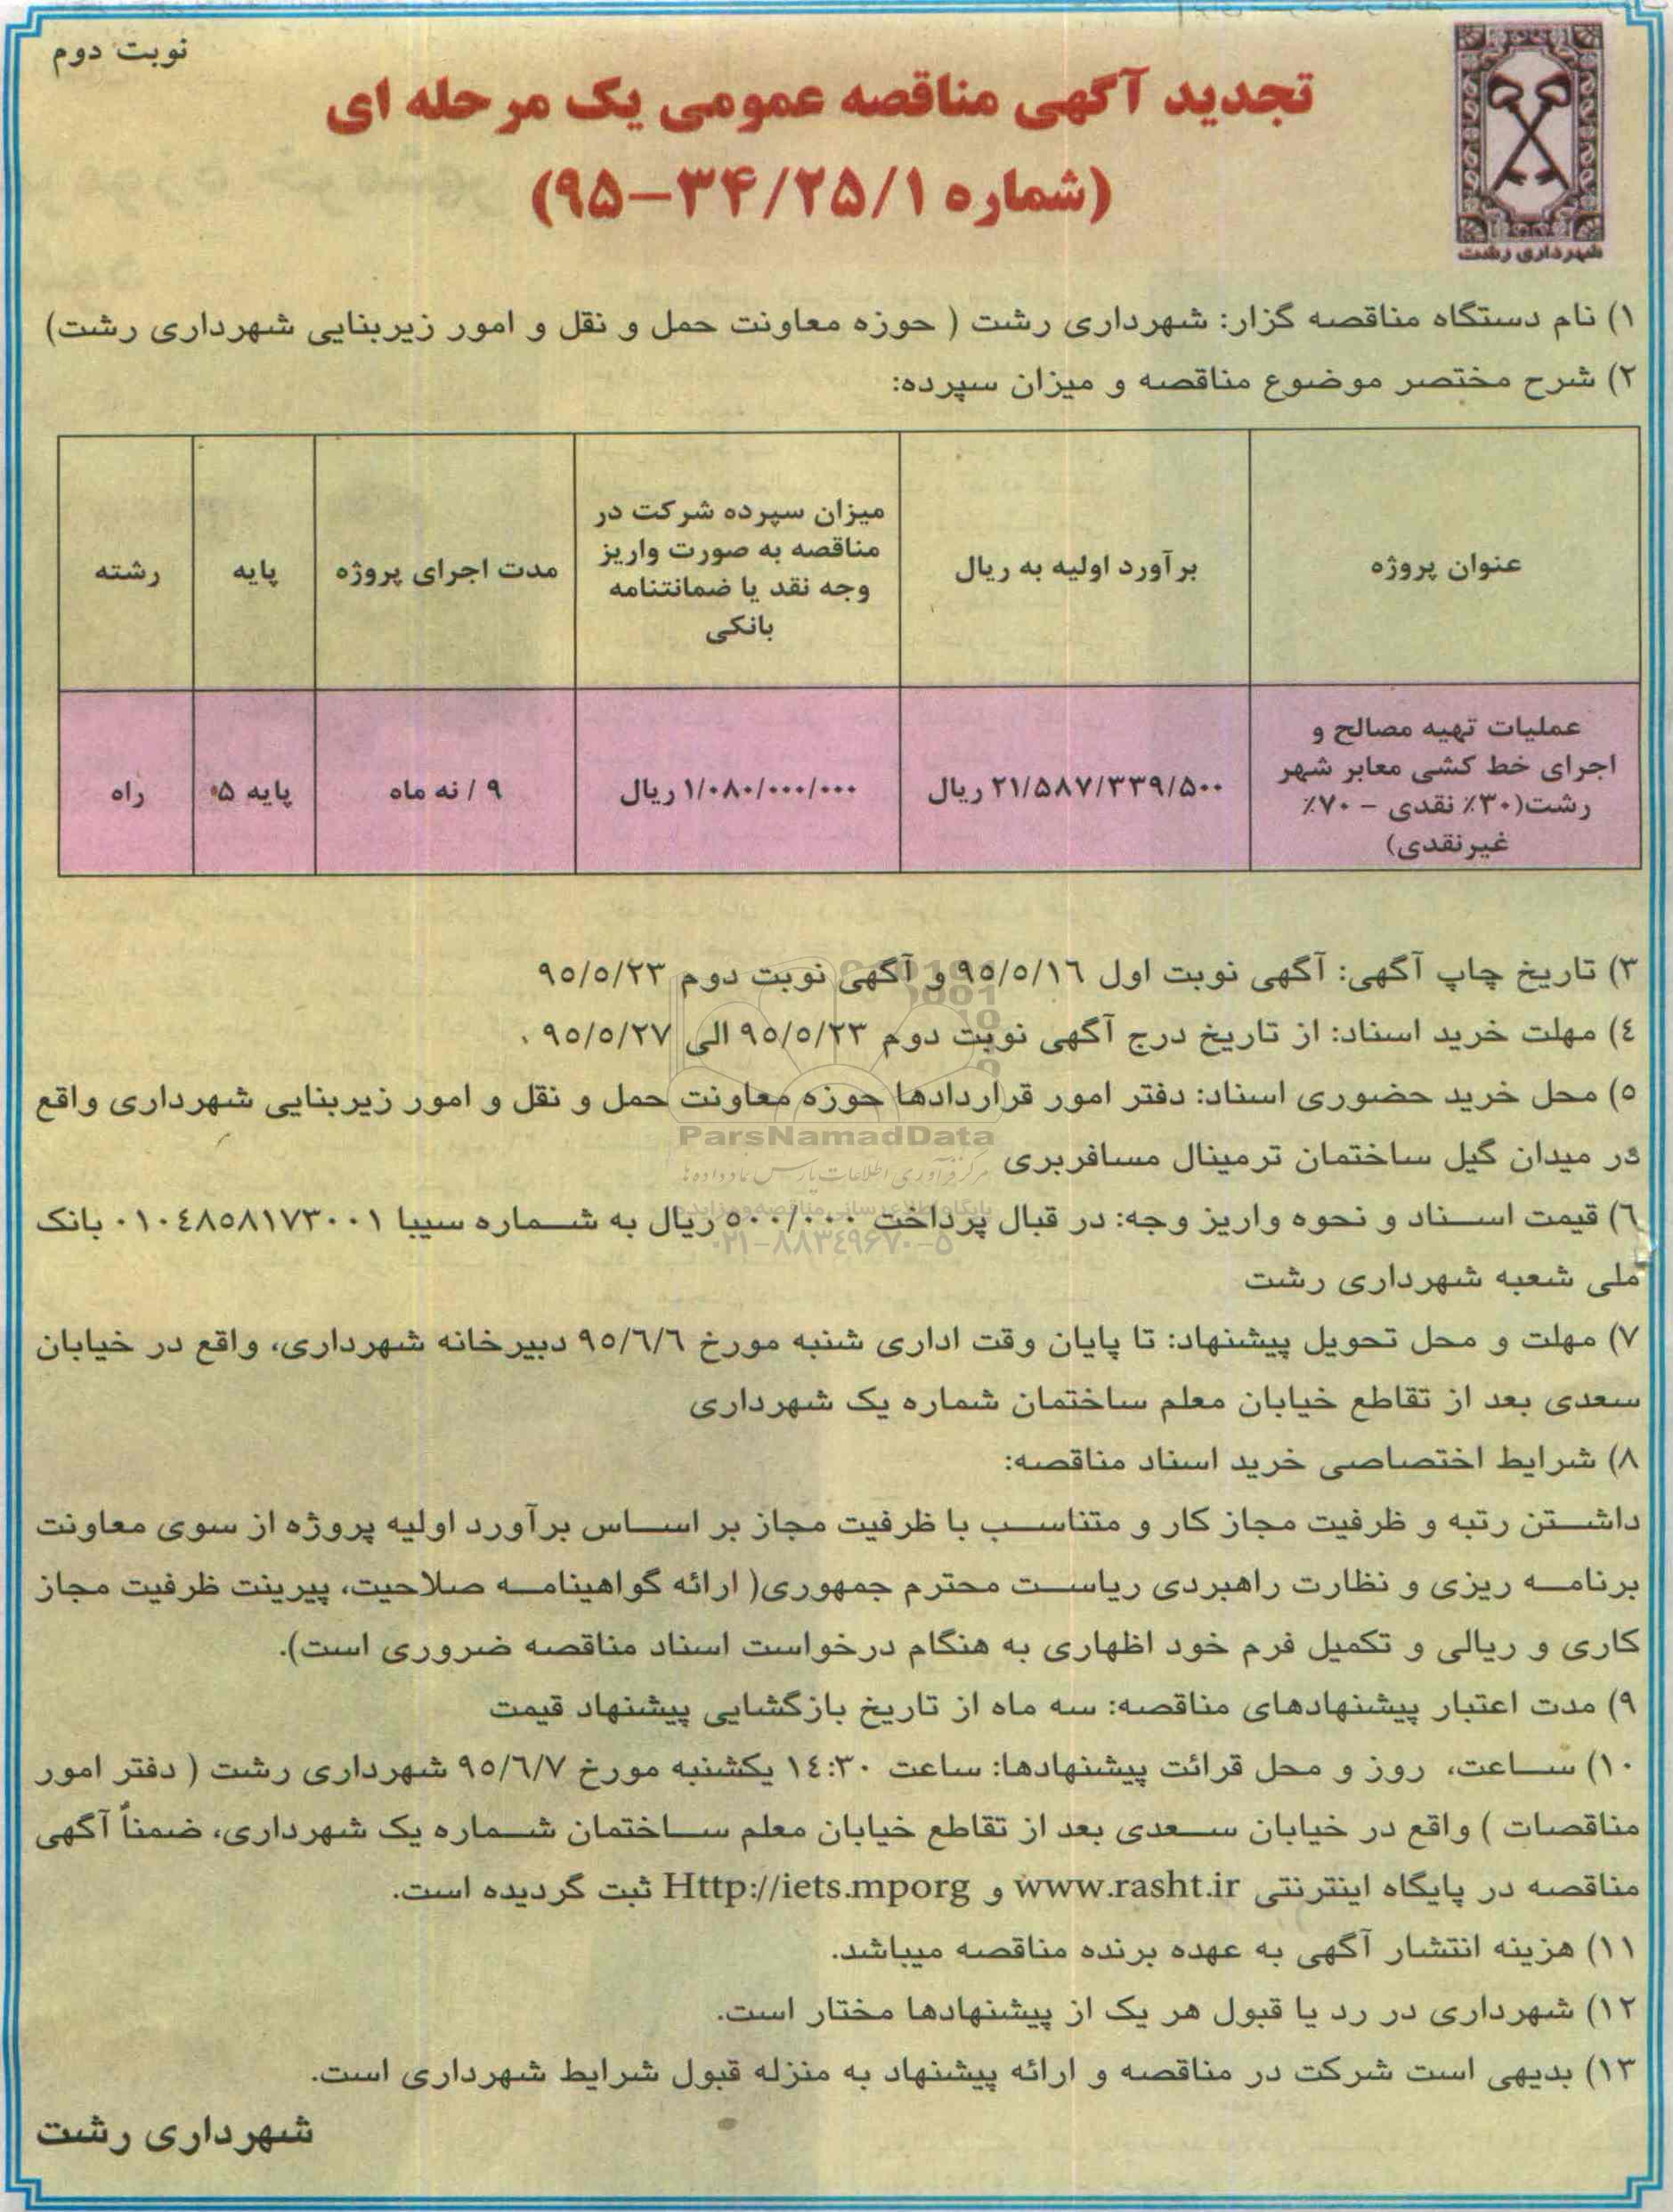 نوبت دوم
تجدید آگهی مناقصه عمومی یک مرحله ای
(شماره ۹۵-۳۴/۲۵/۱)
شهرداری رشت
۱) نام دستگاه مناقصه گزار: شهرداری رشت ( حوزه معاونت حمل و نقل و امور زیربنایی شهرداری رشت)
۲) شرح مختصر موضوع مناقصه و میزان سپرده:
عنوان پروژه
برآورد اولیه به ریال
میزان سپرده شرکت در
مناقصه به صورت واریز
وجه نقد یا ضمانتنامه
بانکی
مدت اجرای پروژه
پایه
رشته
عملیات تهیه مصالح و
اجرای خط کشی معابر شهر
رشت(۳۰٪ نقدی - ۷۰٪
غیرنقدی)
۲۱/۵۸۷/۳۳۹/۵۰۰ ریال
۱/۰۸۰/۰۰۰/۰۰۰ ریال
۹ / نه ماه
پایه ۵
راه
۳) تاریخ چاپ آگهی: آگهی نوبت اول ۹۵/۵/۱۶ و آگهی نوبت دوم ۹۵/۵/۲۳
۴) مهلت خرید اسناد: از تاریخ درج آگهی نوبت دوم ۹۵/۵/۲۳ الی ۹۵/۵/۲۷ .
۵) محل خرید حضوری اسناد: دفتر امور قراردادها حوزه معاونت حمل و نقل و امور زیربنایی شهرداری واقع
در میدان گیل ساختمان ترمینال مسافربری
ParsNamadData
مرکز فرآوری اطلاعات پارس نماد داده ها
پایگاه اطلاع رسانی مناقصه و مزایده
۶) قیمت اسناد و نحوه واریز وجه: در قبال پرداخت ۵۰۰/۰۰۰ ریال به شماره سیبا ۰۱۰۴۸۵۸۱۷۳۰۰۱ بانک
۰۲۱-۸۸۳۴۹۶۷۰-۵
ملی شعبه شهرداری رشت
۷) مهلت و محل تحویل پیشنهاد: تا پایان وقت اداری شنبه مورخ ۹۵/۶/۶ دبیرخانه شهرداری، واقع در خیابان
سعدی بعد از تقاطع خیابان معلم ساختمان شماره یک شهرداری
۸) شرایط اختصاصی خرید اسناد مناقصه:
داشتن رتبه و ظرفیت مجاز کار و متناسب با ظرفیت مجاز بر اساس برآورد اولیه پروژه از سوی معاونت
برنامه ریزی و نظارت راهبردی ریاست محترم جمهوری( ارائه گواهینامه صلاحیت، پیرینت ظرفیت مجاز
کاری و ریالی و تکمیل فرم خود اظهاری به هنگام درخواست اسناد مناقصه ضروری است).
۹) مدت اعتبار پیشنهادهای مناقصه: سه ماه از تاریخ بازگشایی پیشنهاد قیمت
۱۰) ساعت، روز و محل قرائت پیشنهادها: ساعت ۱۴:۳۰ یکشنبه مورخ ۹۵/۶/۷ شهرداری رشت ( دفتر امور
مناقصات ) واقع در خیابان سعدی بعد از تقاطع خیابان معلم ساختمان شماره یک شهرداری، ضمناً آگهی
مناقصه در پایگاه اینترنتی www.rasht.ir و Http://iets.mporg ثبت گردیده است.
۱۱) هزینه انتشار آگهی به عهده برنده مناقصه میباشد.
۱۲) شهرداری در رد یا قبول هر یک از پیشنهادها مختار است.
۱۳) بدیهی است شرکت در مناقصه و ارائه پیشنهاد به منزله قبول شرایط شهرداری است.
شهرداری رشت